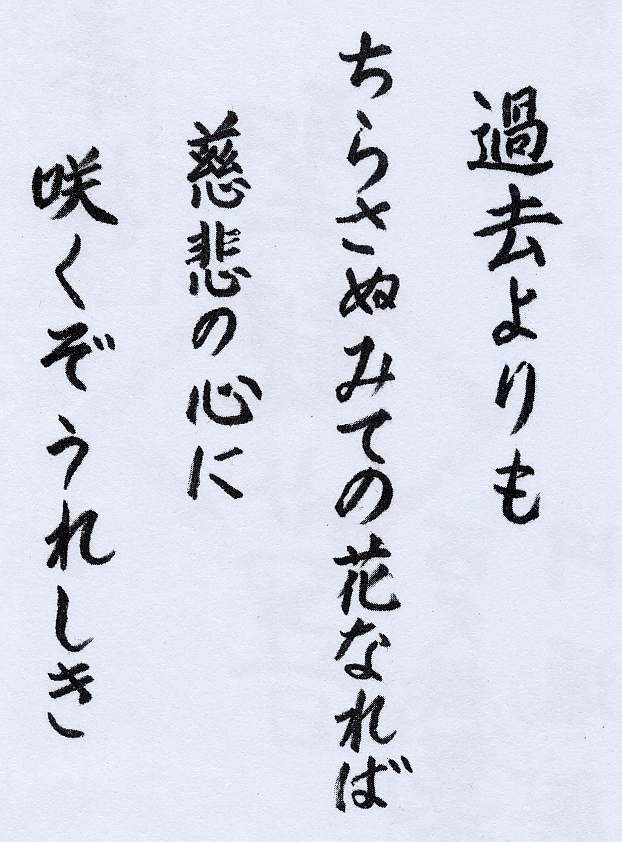 過去よりも
ちらさぬみての花なれば
慈悲の心に
咲くぞうれしき